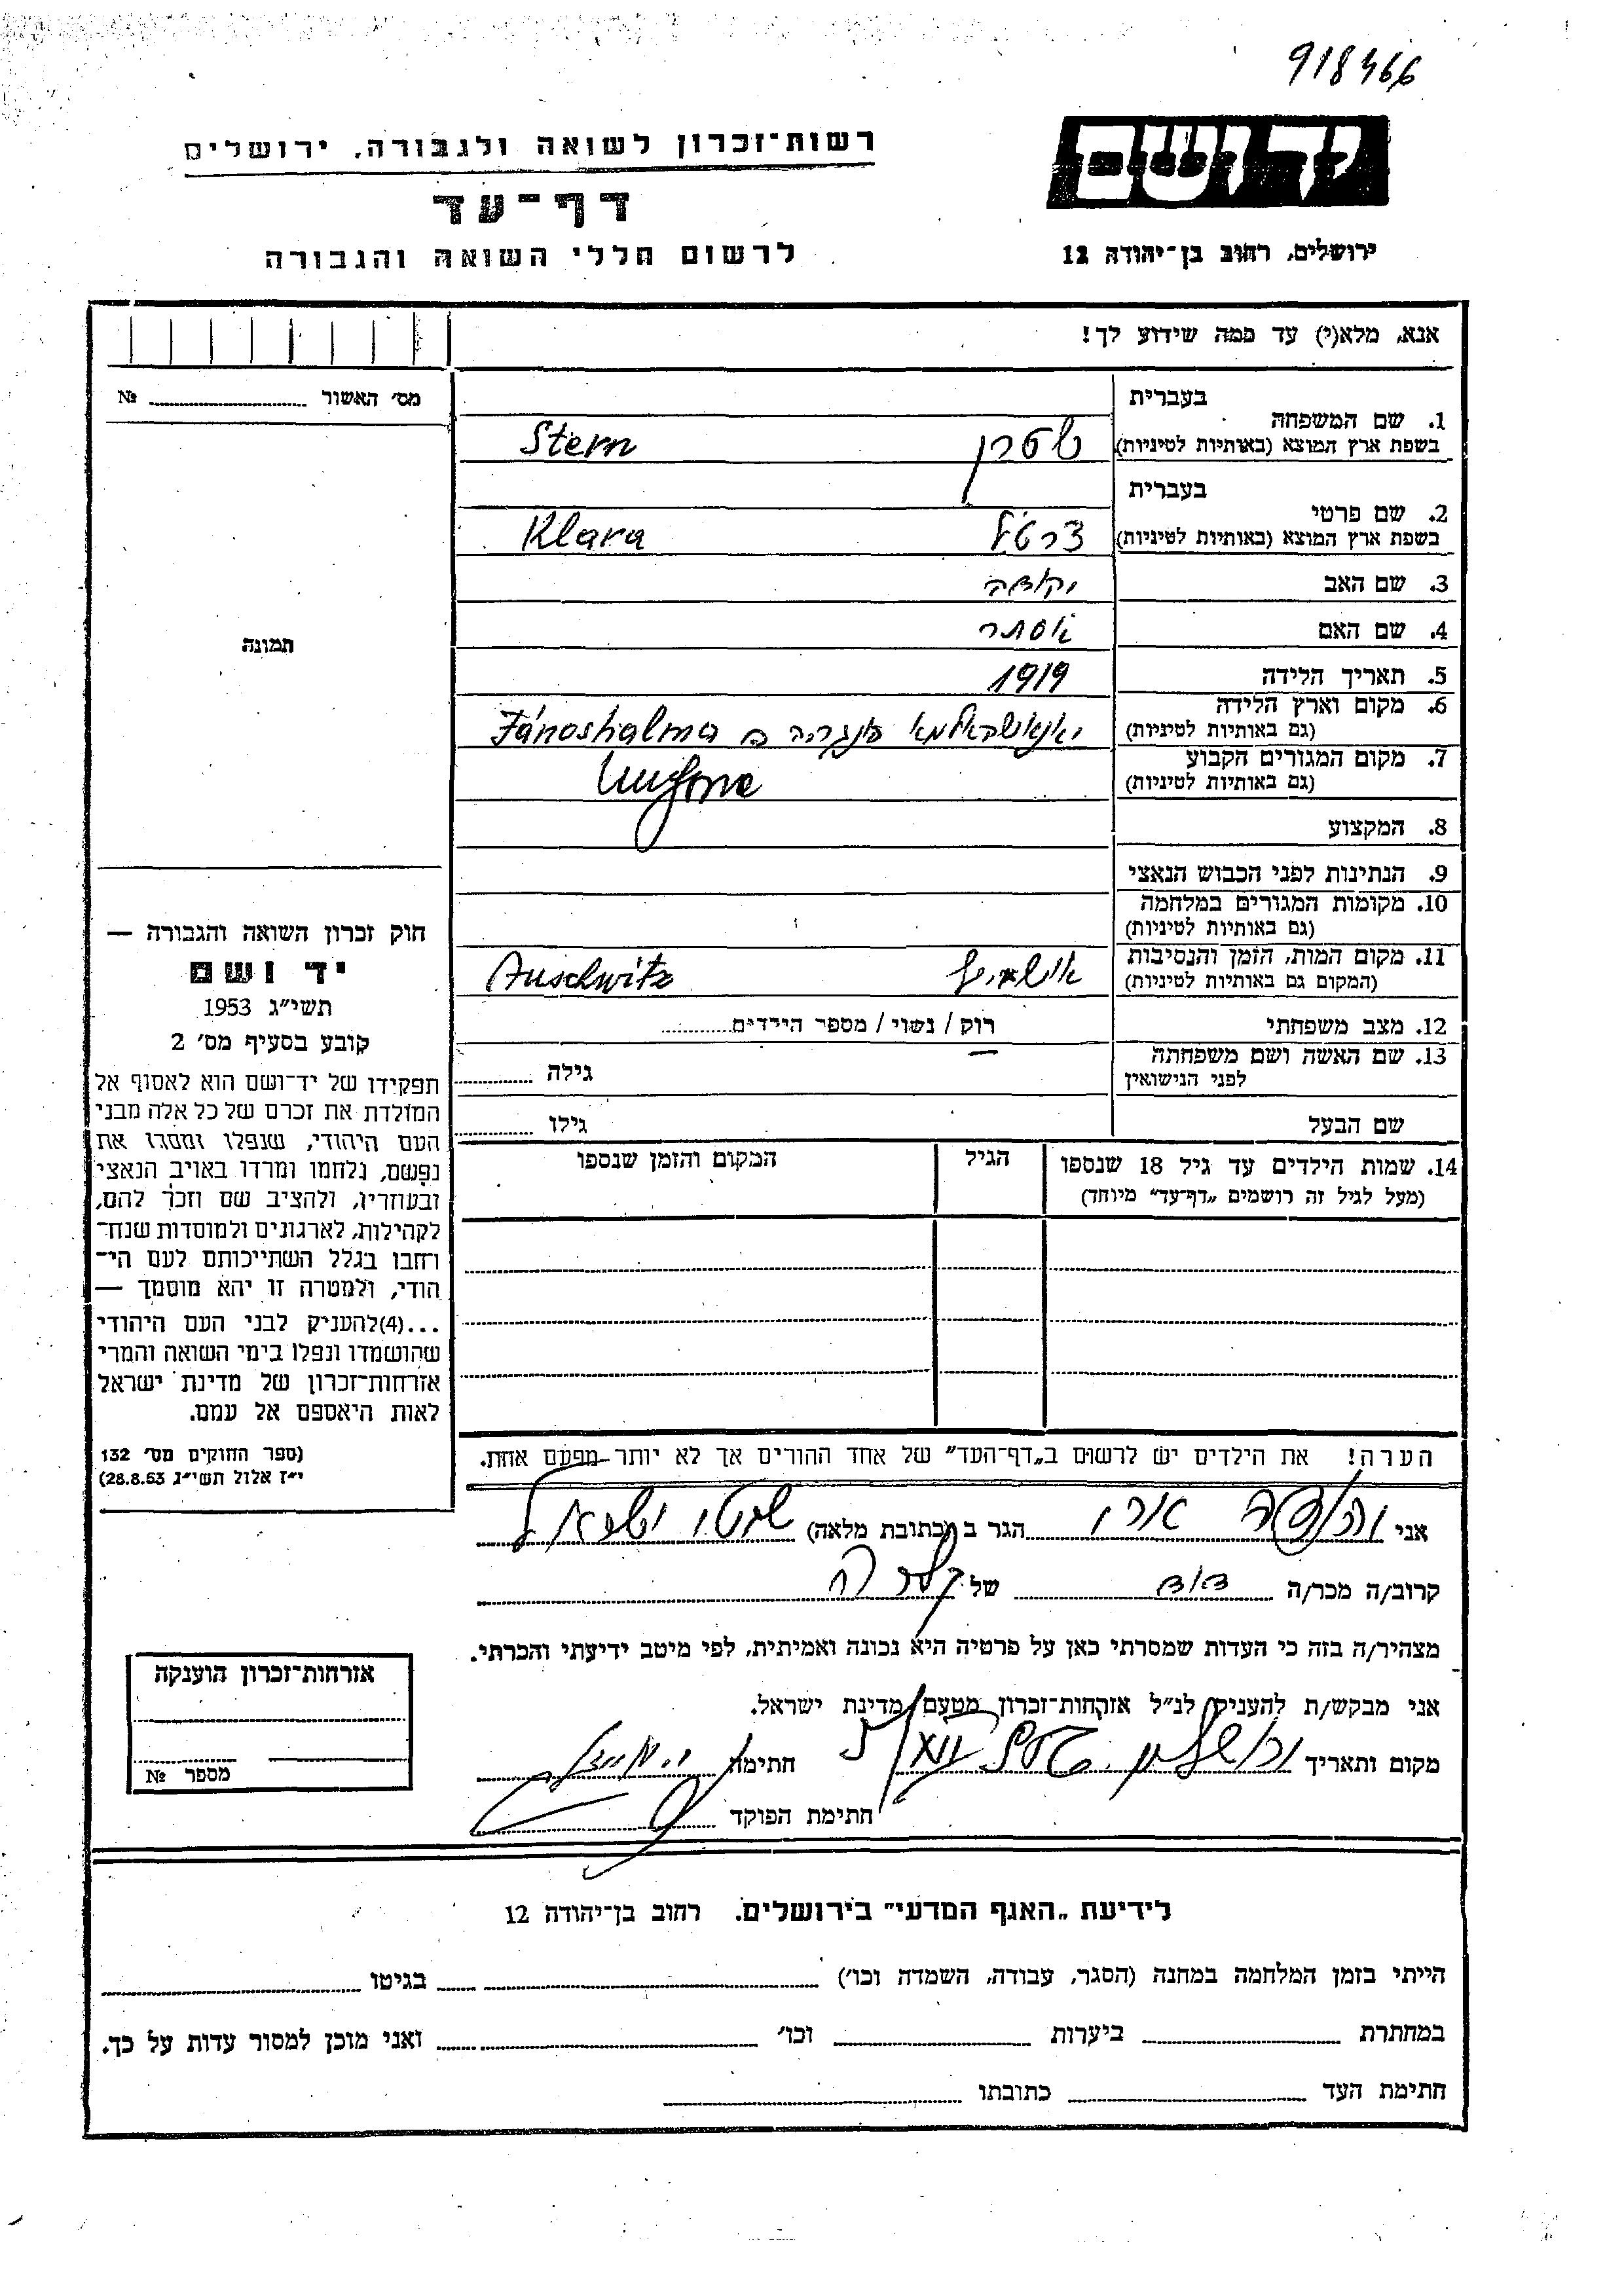 918466
יד ושם
רשות־זכרון לשואה ולגבורה, ירושלים
דף־עד
לרשום חללי השואה והגבורה
ירושלים, רחוב בן־יהודה 12
אנא, מלא(י) עד כמה שידוע לך!
מס׳ האשור № 
1. שם המשפחה
בעברית
בשפת ארץ המוצא (באותיות לטיניות)
שטרן Stern
2. שם פרטי
בעברית
בשפת ארץ המוצא (באותיות לטיניות)
Klara
3. שם האב
4. שם האם אסתר
5. תאריך הלידה 1919
6. מקום וארץ הלידה
(גם באותיות לטיניות)
Jánoshalma
7. מקום המגורים הקבוע
(גם באותיות לטיניות)
8. המקצוע
9. הנתינות לפני הכבוש הנאצי
10. מקומות המגורים במלחמה
(גם באותיות לטיניות)
11. מקום המות, הזמן והנסיבות
(המקום גם באותיות לטיניות)
Auschwitz
12. מצב משפחתי רוק / נשוי / מספר הילדים
13. שם האשה ושם משפחתה
לפני הנישואין
גילה
שם הבעל גילו
14. שמות הילדים עד גיל 18 שנספו
(מעל לגיל זה רושמים „דף־עד״ מיוחד)
הגיל
המקום והזמן שנספו
הערה! את הילדים יש לרשום ב„דף־העד״ של אחד ההורים אך לא יותר מפעם אחת.
תמונה
חוק זכרון השואה והגבורה —
יד ושם
תשי״ג 1953
קובע בסעיף מס׳ 2
תפקידו של יד־ושם הוא לאסוף אל
המולדת את זכרם של כל אלה מבני
העם היהודי, שנפלו ומסרו את
נפשם, נלחמו ומרדו באויב הנאצי
ובעוזריו, ולהציב שם וזכר להם,
לקהילות, לארגונים ולמוסדות שנח־
רחבו בגלל השתייכותם לעם הי־
הודי, ולמטרה זו יהא מוסמך —
...(4)להעניק לבני העם היהודי
שהושמדו ונפלו בימי השואה והמרי
אזרחות־זכרון של מדינת ישראל
לאות היאספם אל עמם.
(ספר החוקים מס׳ 132
י״ז אלול תשי״ג 28.8.53)
אני הגר ב (כתובת מלאה)
קרוב/ה מכר/ה דוד של
מצהיר/ה בזה כי העדות שמסרתי כאן על פרטיה היא נכונה ואמיתית, לפי מיטב ידיעתי והכרתי.
אני מבקש/ת להעניק לנ״ל אזרחות־זכרון מטעם מדינת ישראל.
מקום ותאריך ירושלים חתימה
חתימת הפוקד
אזרחות־זכרון הוענקה
מספר №
לידיעת „האגף המדעי״ בירושלים. רחוב בן־יהודה 12
הייתי בזמן המלחמה במחנה (הסגר, עבודה, השמדה וכו׳) בגיטו
במחתרת ביערות וכו׳ ואני מוכן למסור עדות על כך.
חתימת העד כתובתו